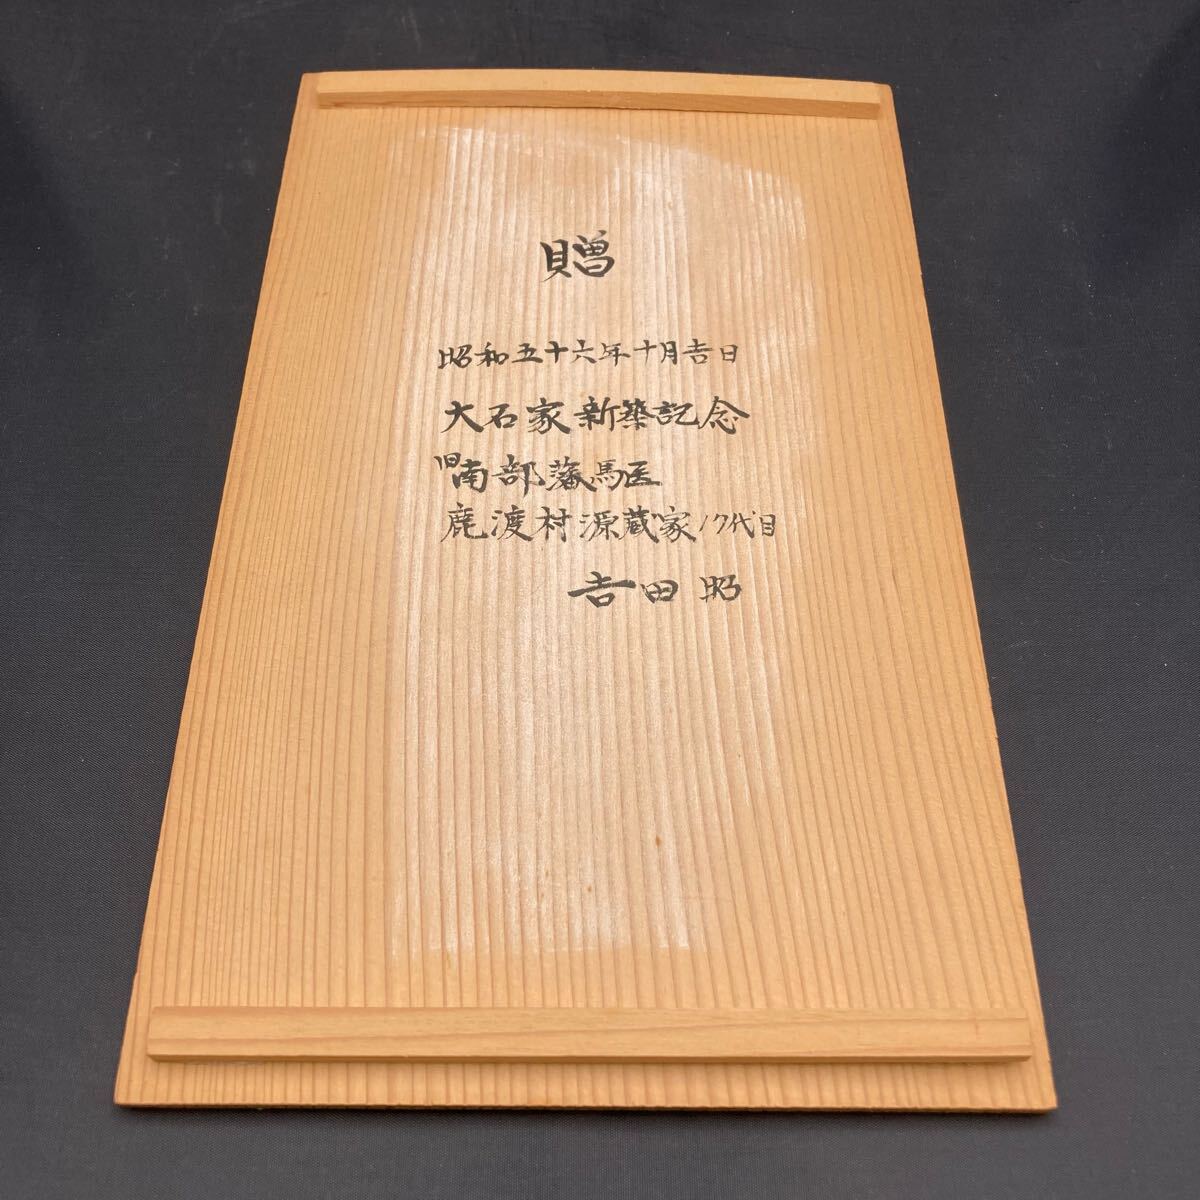 贈
昭和五十六年十月吉日
大石家新築記念
旧南部藩馬医
鹿渡村源蔵家17代目
吉田昭